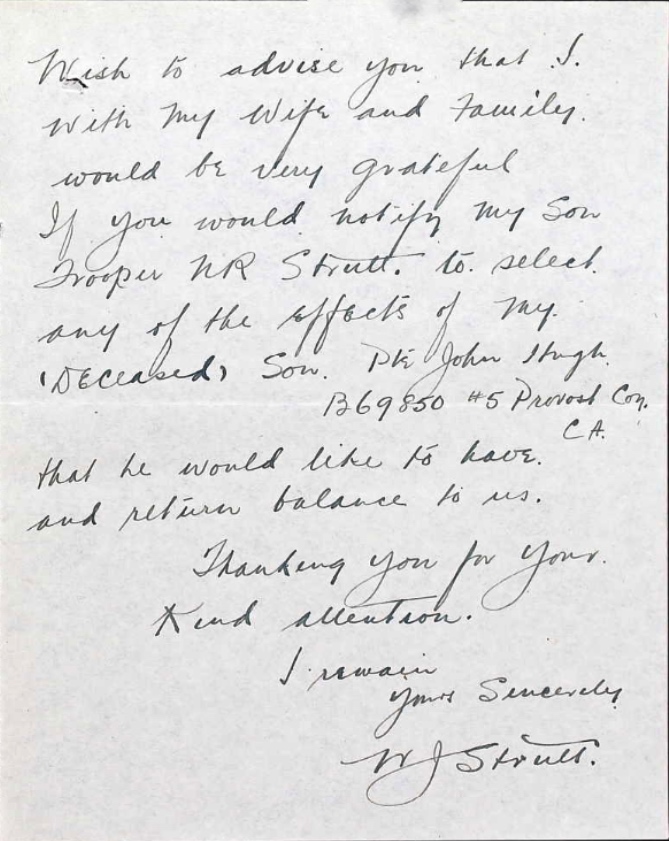 Wish to advise you that I.
with My Wife and Family.
would be very grateful
If you would notify my Son
Trooper NR Strutt. to. select.
any of the effects of my.
(DECEASED) Son. Pte John Hugh.
B69850 #5 Provost Coy.
CA.
that he would like to have.
and return balance to us.
Thanking you for your.
Kind attention.
I remain
yours Sincerely
W J Strutt.